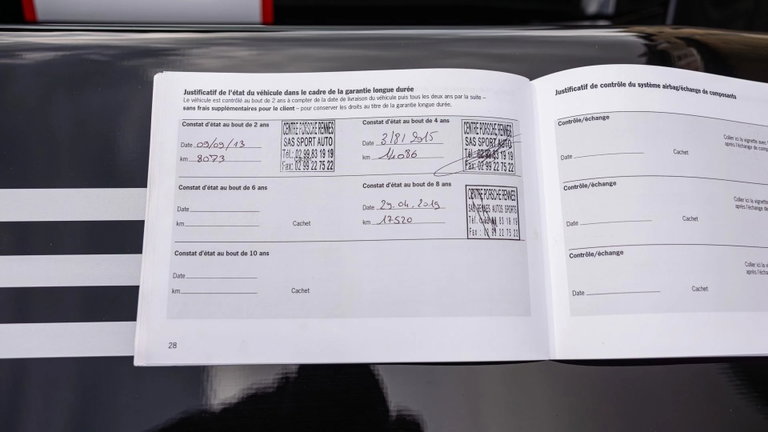 Justificatif de l'état du véhicule dans le cadre de la garantie longue durée
Le véhicule est contrôlé au bout de 2 ans à compter de la date de livraison du véhicule puis tous les deux ans par la suite –
sans frais supplémentaires pour le client – pour conserver les droits au titre de la garantie longue durée.
Constat d'état au bout de 2 ans
Date 09/09/13
km 8073
CENTRE PORSCHE RENNES
SAS SPORT AUTO
Tél.: 02 99 83 19 19
Fax: 02 99 22 75 22
Constat d'état au bout de 4 ans
Date 3/8/2015
km 14086
CENTRE PORSCHE RENNES
SAS SPORT AUTO
Tél.: 02 99 83 19 19
Fax: 02 99 22 75 22
Constat d'état au bout de 6 ans
Date
km
Cachet
Constat d'état au bout de 8 ans
Date 29.04.2019
km 17520
CENTRE PORSCHE RENNES
SAS RENNES AUTOS SPORTS
Tél. 83 19 19
Fax : 02 99 22 75 22
Constat d'état au bout de 10 ans
Date
km
Cachet
28
Justificatif de contrôle du système airbag/échange de composants
Contrôle/échange
Coller ici la vignette avec
après l'échange de
Date
Cachet
Contrôle/échange
Coller ici la vignette
après l'échange
Date
Cachet
Contrôle/échange
Coller ici la
après l'éch
Date
Cachet